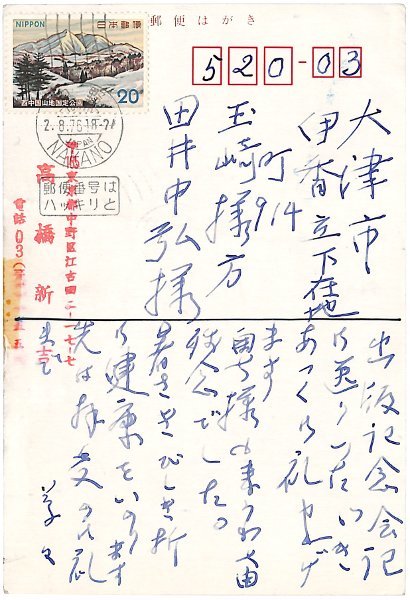 郵便はがき
NIPPON
日本郵便
20
西中国山地国定公園
2.8.76 18-24
JAPAN
NAKANO
郵便番号は
ハッキリと
520-03
大津市
伊香立下在地
町914
玉崎様方
田井中弘様
165東京都中野区江古田二-一七-七
高橋新
電話03
出版記念会記
お送りいただき
あつく御礼申上げ
ます
残念でした。
暑さきびしき折
御健康をいのります
先は拝受の御礼
まで
草々